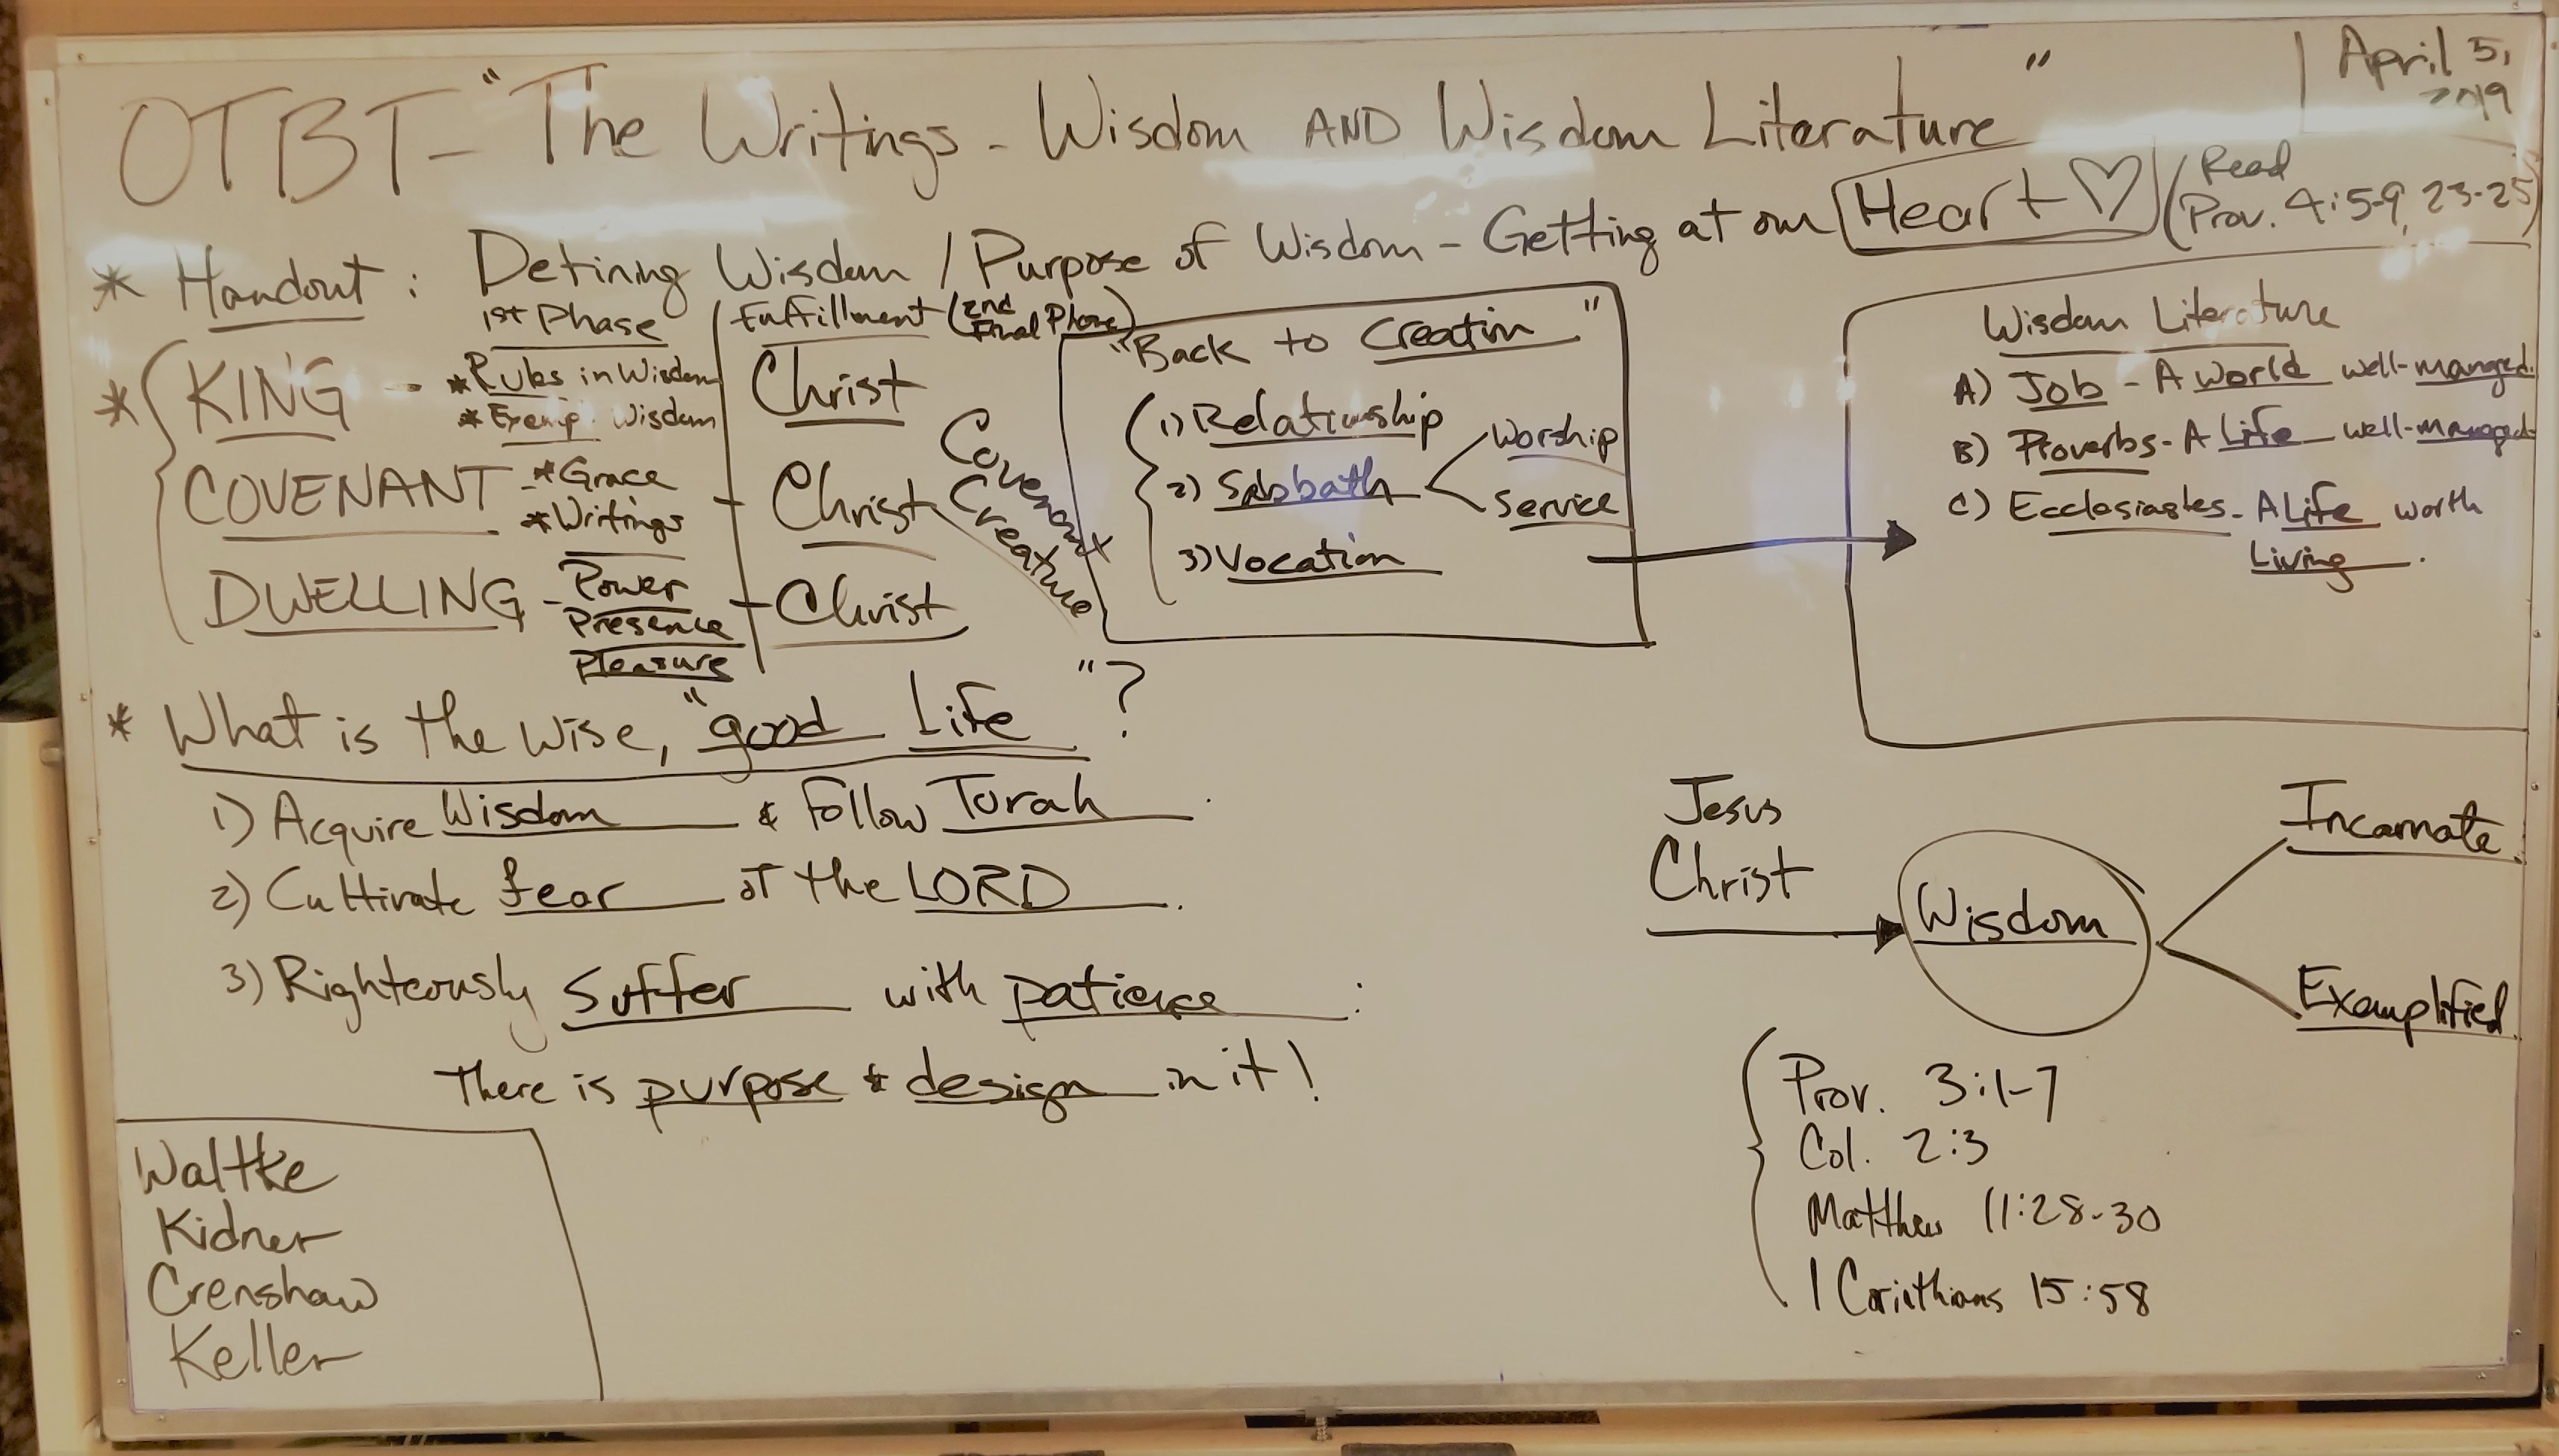 OTBT - "The Writings - Wisdom AND Wisdom Literature"
April 5,
2019
* Handout : Defining Wisdom / Purpose of Wisdom - Getting at our Heart ♡ (Read
Prov. 4:5-9, 23-25)
1st Phase
Fulfillment (2nd
Final Phase)
* { KING - * Rules in Wisdom
* Exemp. Wisdom
Christ
COVENANT - * Grace
* Writings
- Christ
DWELLING - Power
Presence
Pleasure
- Christ
Covenant
Creature
"Back to Creation"
1) Relationship
2) Sabbath
Worship
Service
3) Vocation
Wisdom Literature
A) Job - A World well-managed.
B) Proverbs - A Life well-managed
C) Ecclesiastes - A Life worth
Living.
* What is the wise, "good Life"?
1) Acquire Wisdom & Follow Torah.
2) Cultivate fear of the LORD.
3) Righteously Suffer with patience:
There is purpose & design in it!
Jesus
Christ
Wisdom
Incarnate
Exemplified
Prov. 3:1-7
Col. 2:3
Matthew 11:28-30
1 Corinthians 15:58
Waltke
Kidner
Crenshaw
Keller